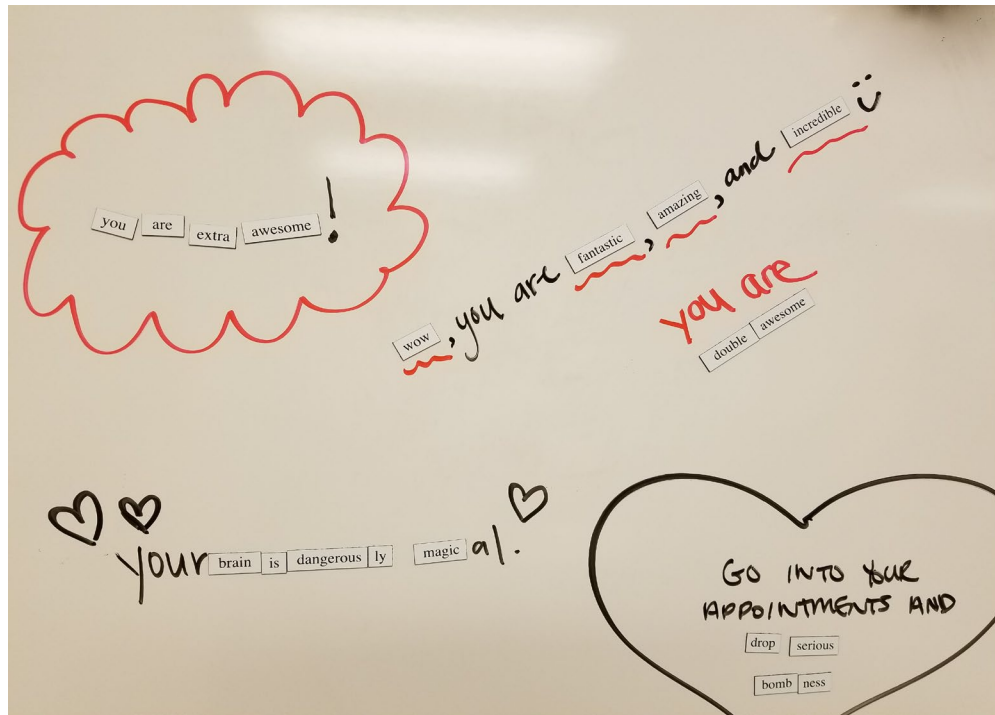 you are extra awesome!
wow, you are fantastic, amazing, and incredible
you are
double awesome
your brain is dangerous ly magic al.
GO INTO YOUR
APPOINTMENTS AND
drop serious
bomb ness